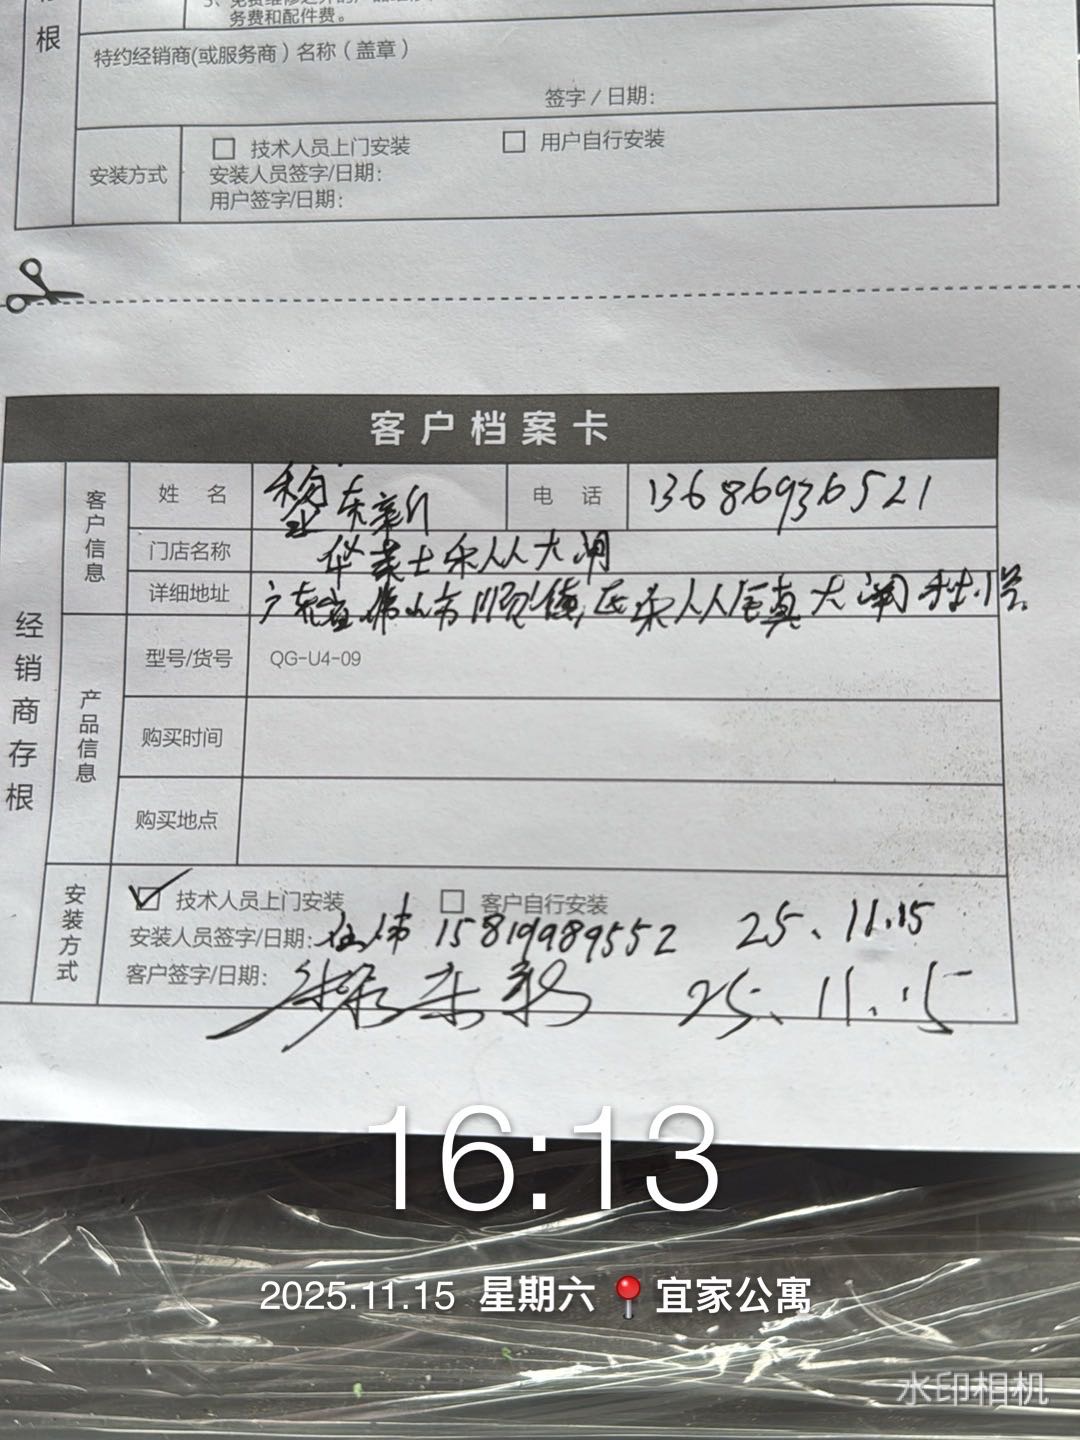 根
务费和配件费。
特约经销商(或服务商）名称（盖章）
签字／日期：
安装方式
□ 技术人员上门安装 □ 用户自行安装
安装人员签字/日期：
用户签字/日期：
客户档案卡
经销商存根
客户信息
姓 名
电 话 13686936521
门店名称 华莱士 大润
详细地址 广东省佛山市顺德区 大润
产品信息
型号/货号 QG-U4-09
购买时间
购买地点
安装方式
☑ 技术人员上门安装 □ 客户自行安装
安装人员签字/日期： 15819989552 25、11.15
客户签字/日期： 25、11.15
16:13
2025.11.15 星期六 宜家公寓
水印相机